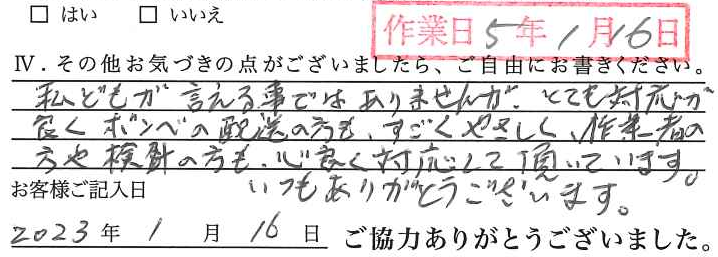 □ はい　□ いいえ
作業日 5年 1月 16日
Ⅳ．その他お気づきの点がございましたら、ご自由にお書きください。
私どもが言える事ではありませんが、とても対応が
良くボンベの配送の方も、すごくやさしく、作業者の
方や検針の方も、心良く対応して頂いています。
いつもありがとうございます。
お客様ご記入日
2023年 1月 16日 ご協力ありがとうございました。